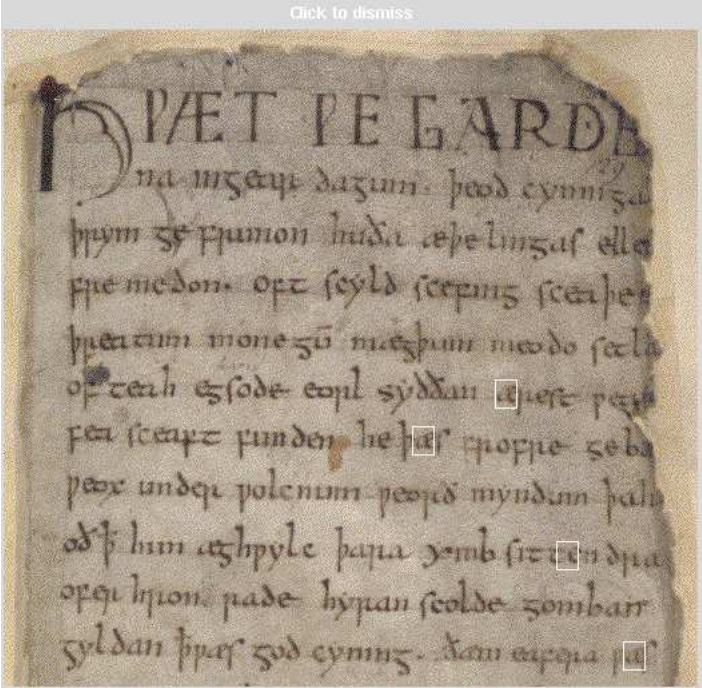 Click to dismiss
HǷÆT ǷE GARDE
na in gear dagum. þeod cyninga
þrym ge frunon huða æþelingas elle
fre medon. oft scyld scefing sceaþe
þreatum monegū mægþum meodo setla
of teah egsode eorl syððan ærest ƿear
fea sceaft funden he þæs frofre geba
ƿeox under ƿolcnum ƿeorð myndum þah
oð ꝥ him æghƿylc þara ymb sittendra
ofer hron rade hyran scolde gomban
gyldan ꝥ ƿæs god cyning. ðæm eafera ƿæs